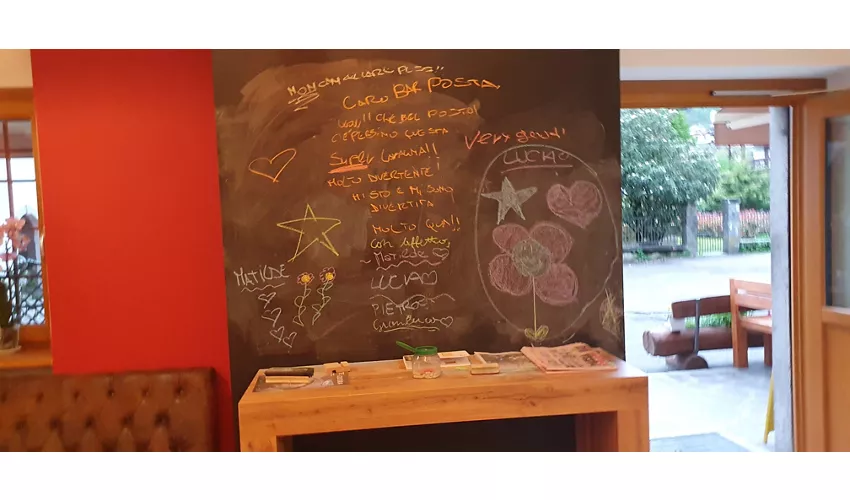 CARO BAR POSTA,
WOW!! CHE BEL POSTO!
C'È PERSINO QUESTA
SUPER LAVAGNA!!
MOLTO DIVERTENTE!
MI STO E MI SONO
DIVERTITA
MOLTO QUA!!
con affetto,
MATILDE
LUCIA
PIETRO
Gianluca
Very good!
LUCIA
MATILDE